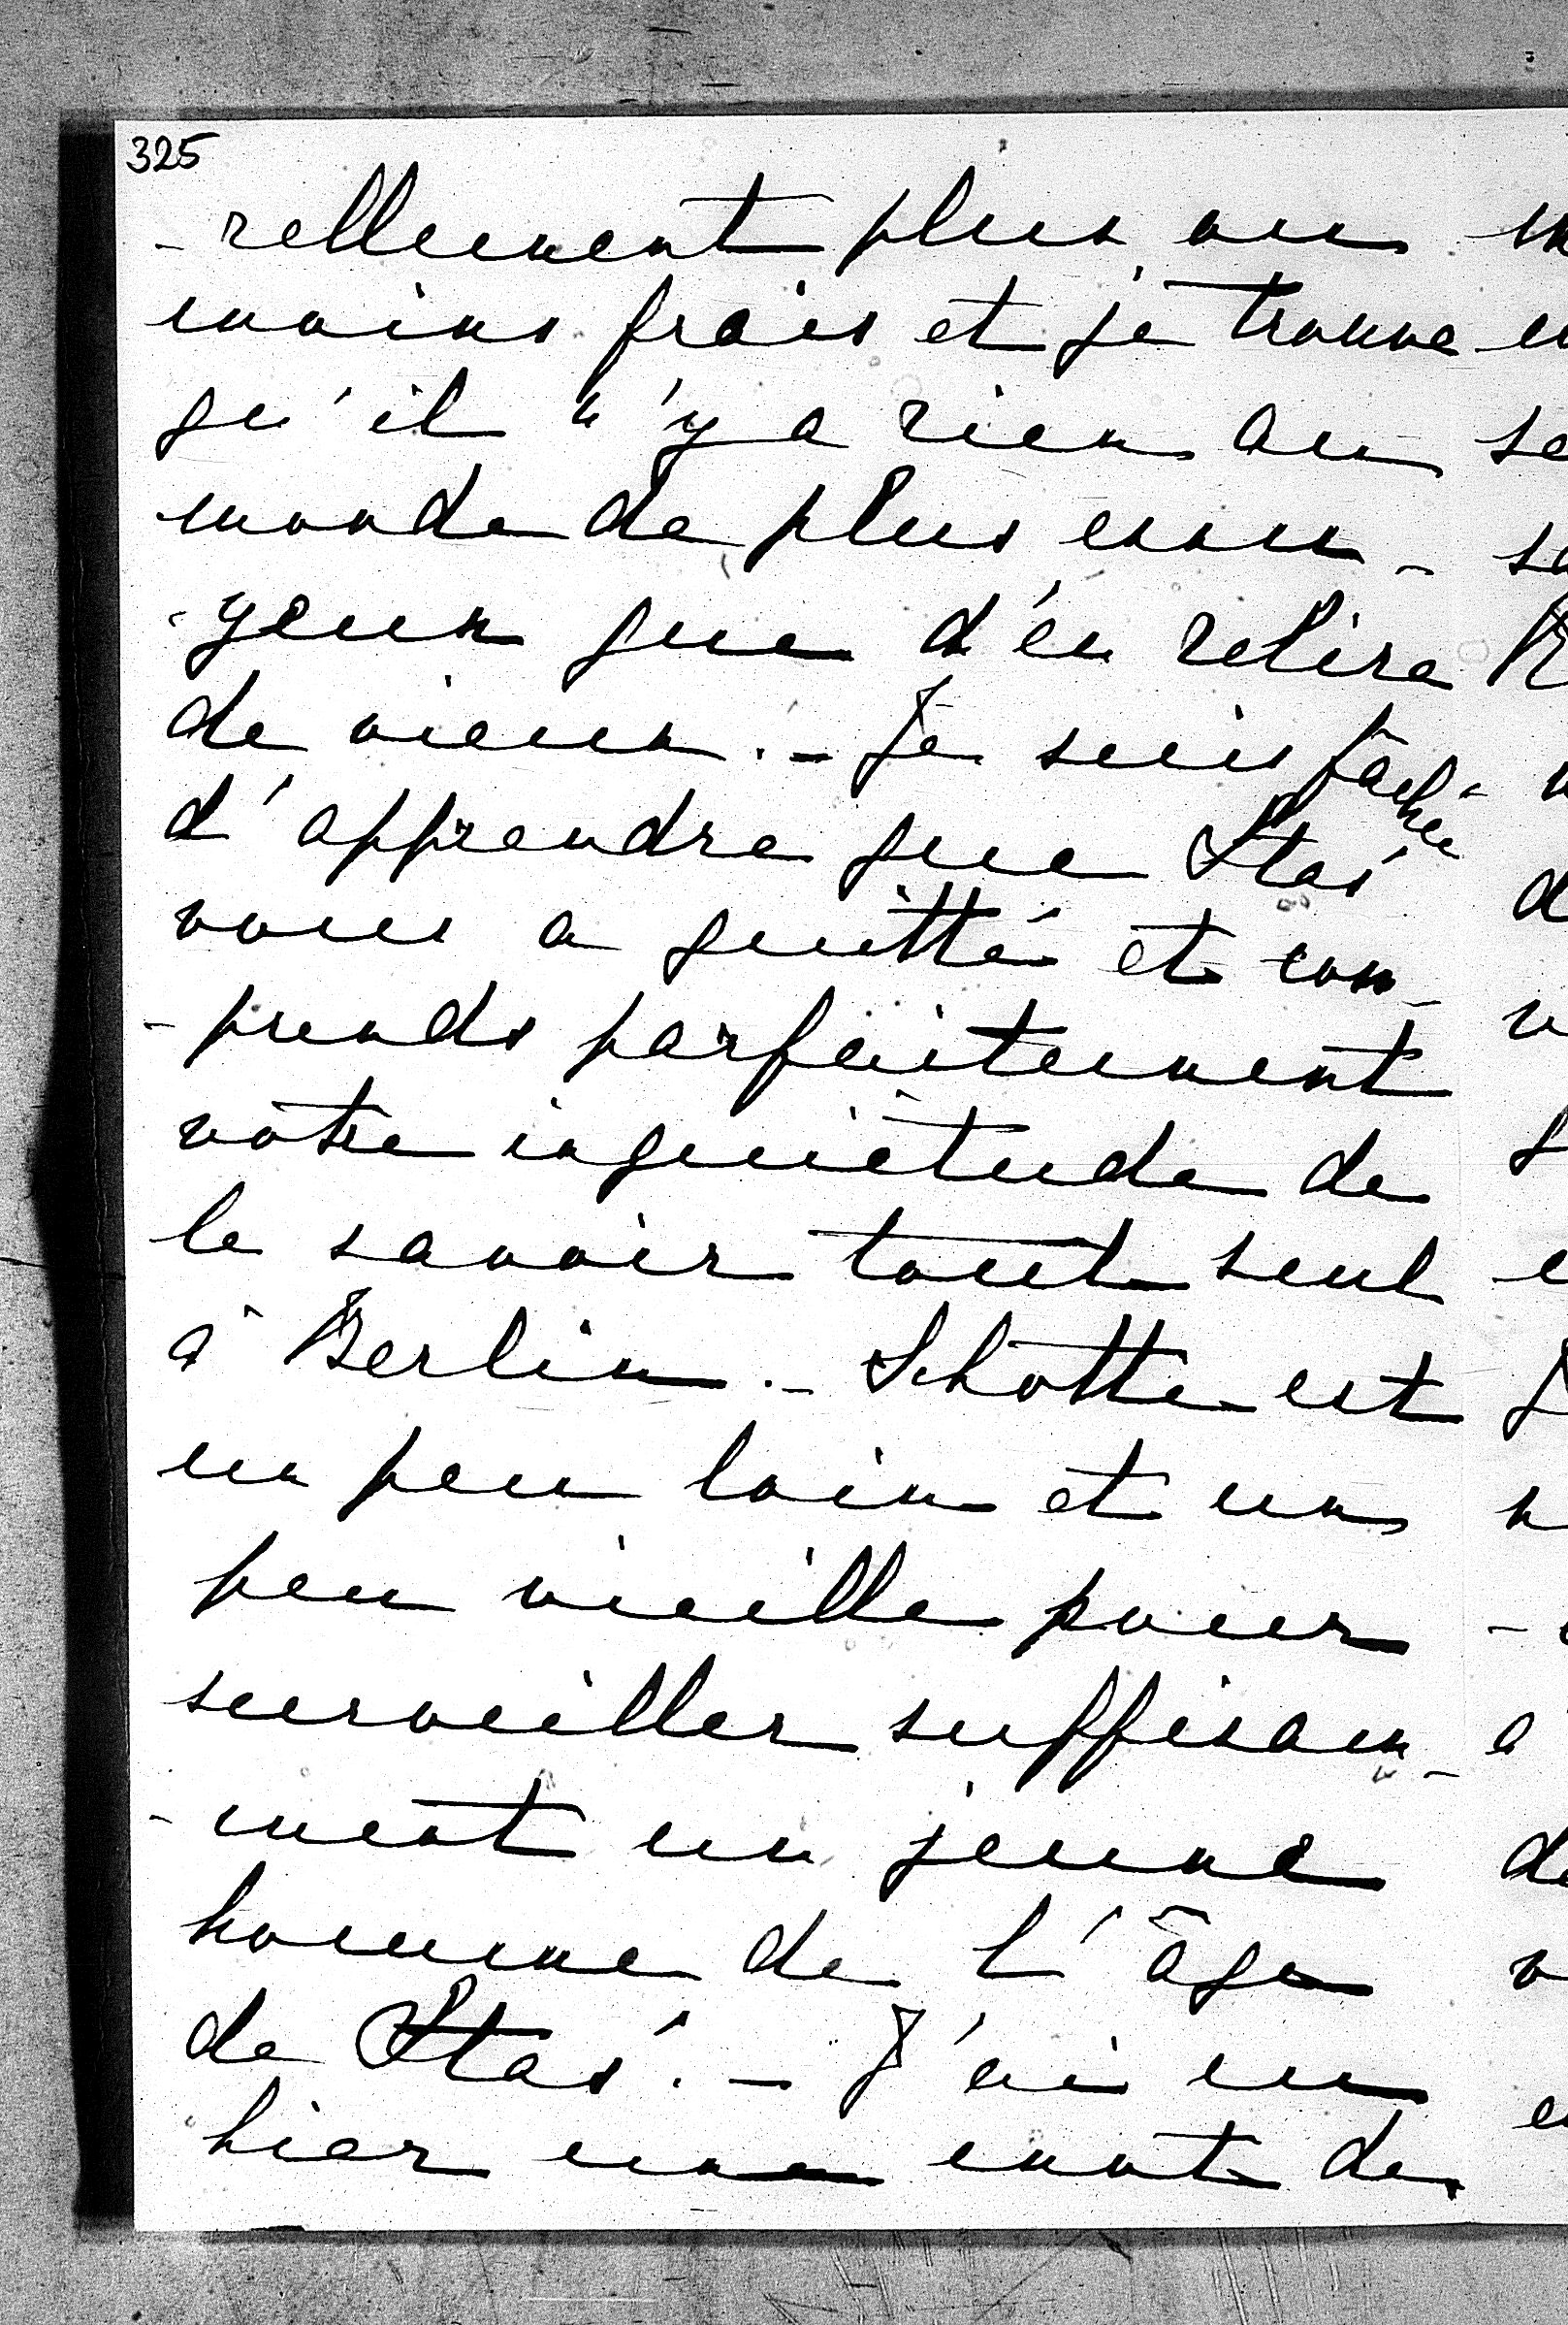 325
-rellement plus ou
moins frais et je trouve
qu'il n'y a rien au
monde de plus ennu-
-yeux que d'en relire
de vieux. - Je suis fâchée
d'apprendre que Stas'
vous a quitté et com-
-prends parfaitement
votre inquiétude de
le savoir tout seul
à Berlin. - Schotte est
un peu loin et un
peu vieille pour
surveiller suffisam-
-ment un jeune
homme de l'âge
de Stas'. - J'ai eu
hier un mot de